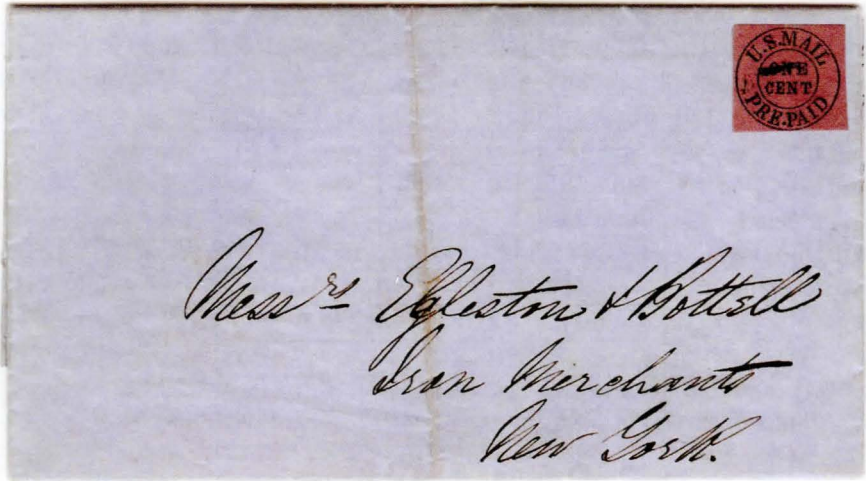 U.S.MAIL
ONE
CENT
PRE-PAID
Messrs Egleston & Bottell
Iron Merchants
New York.